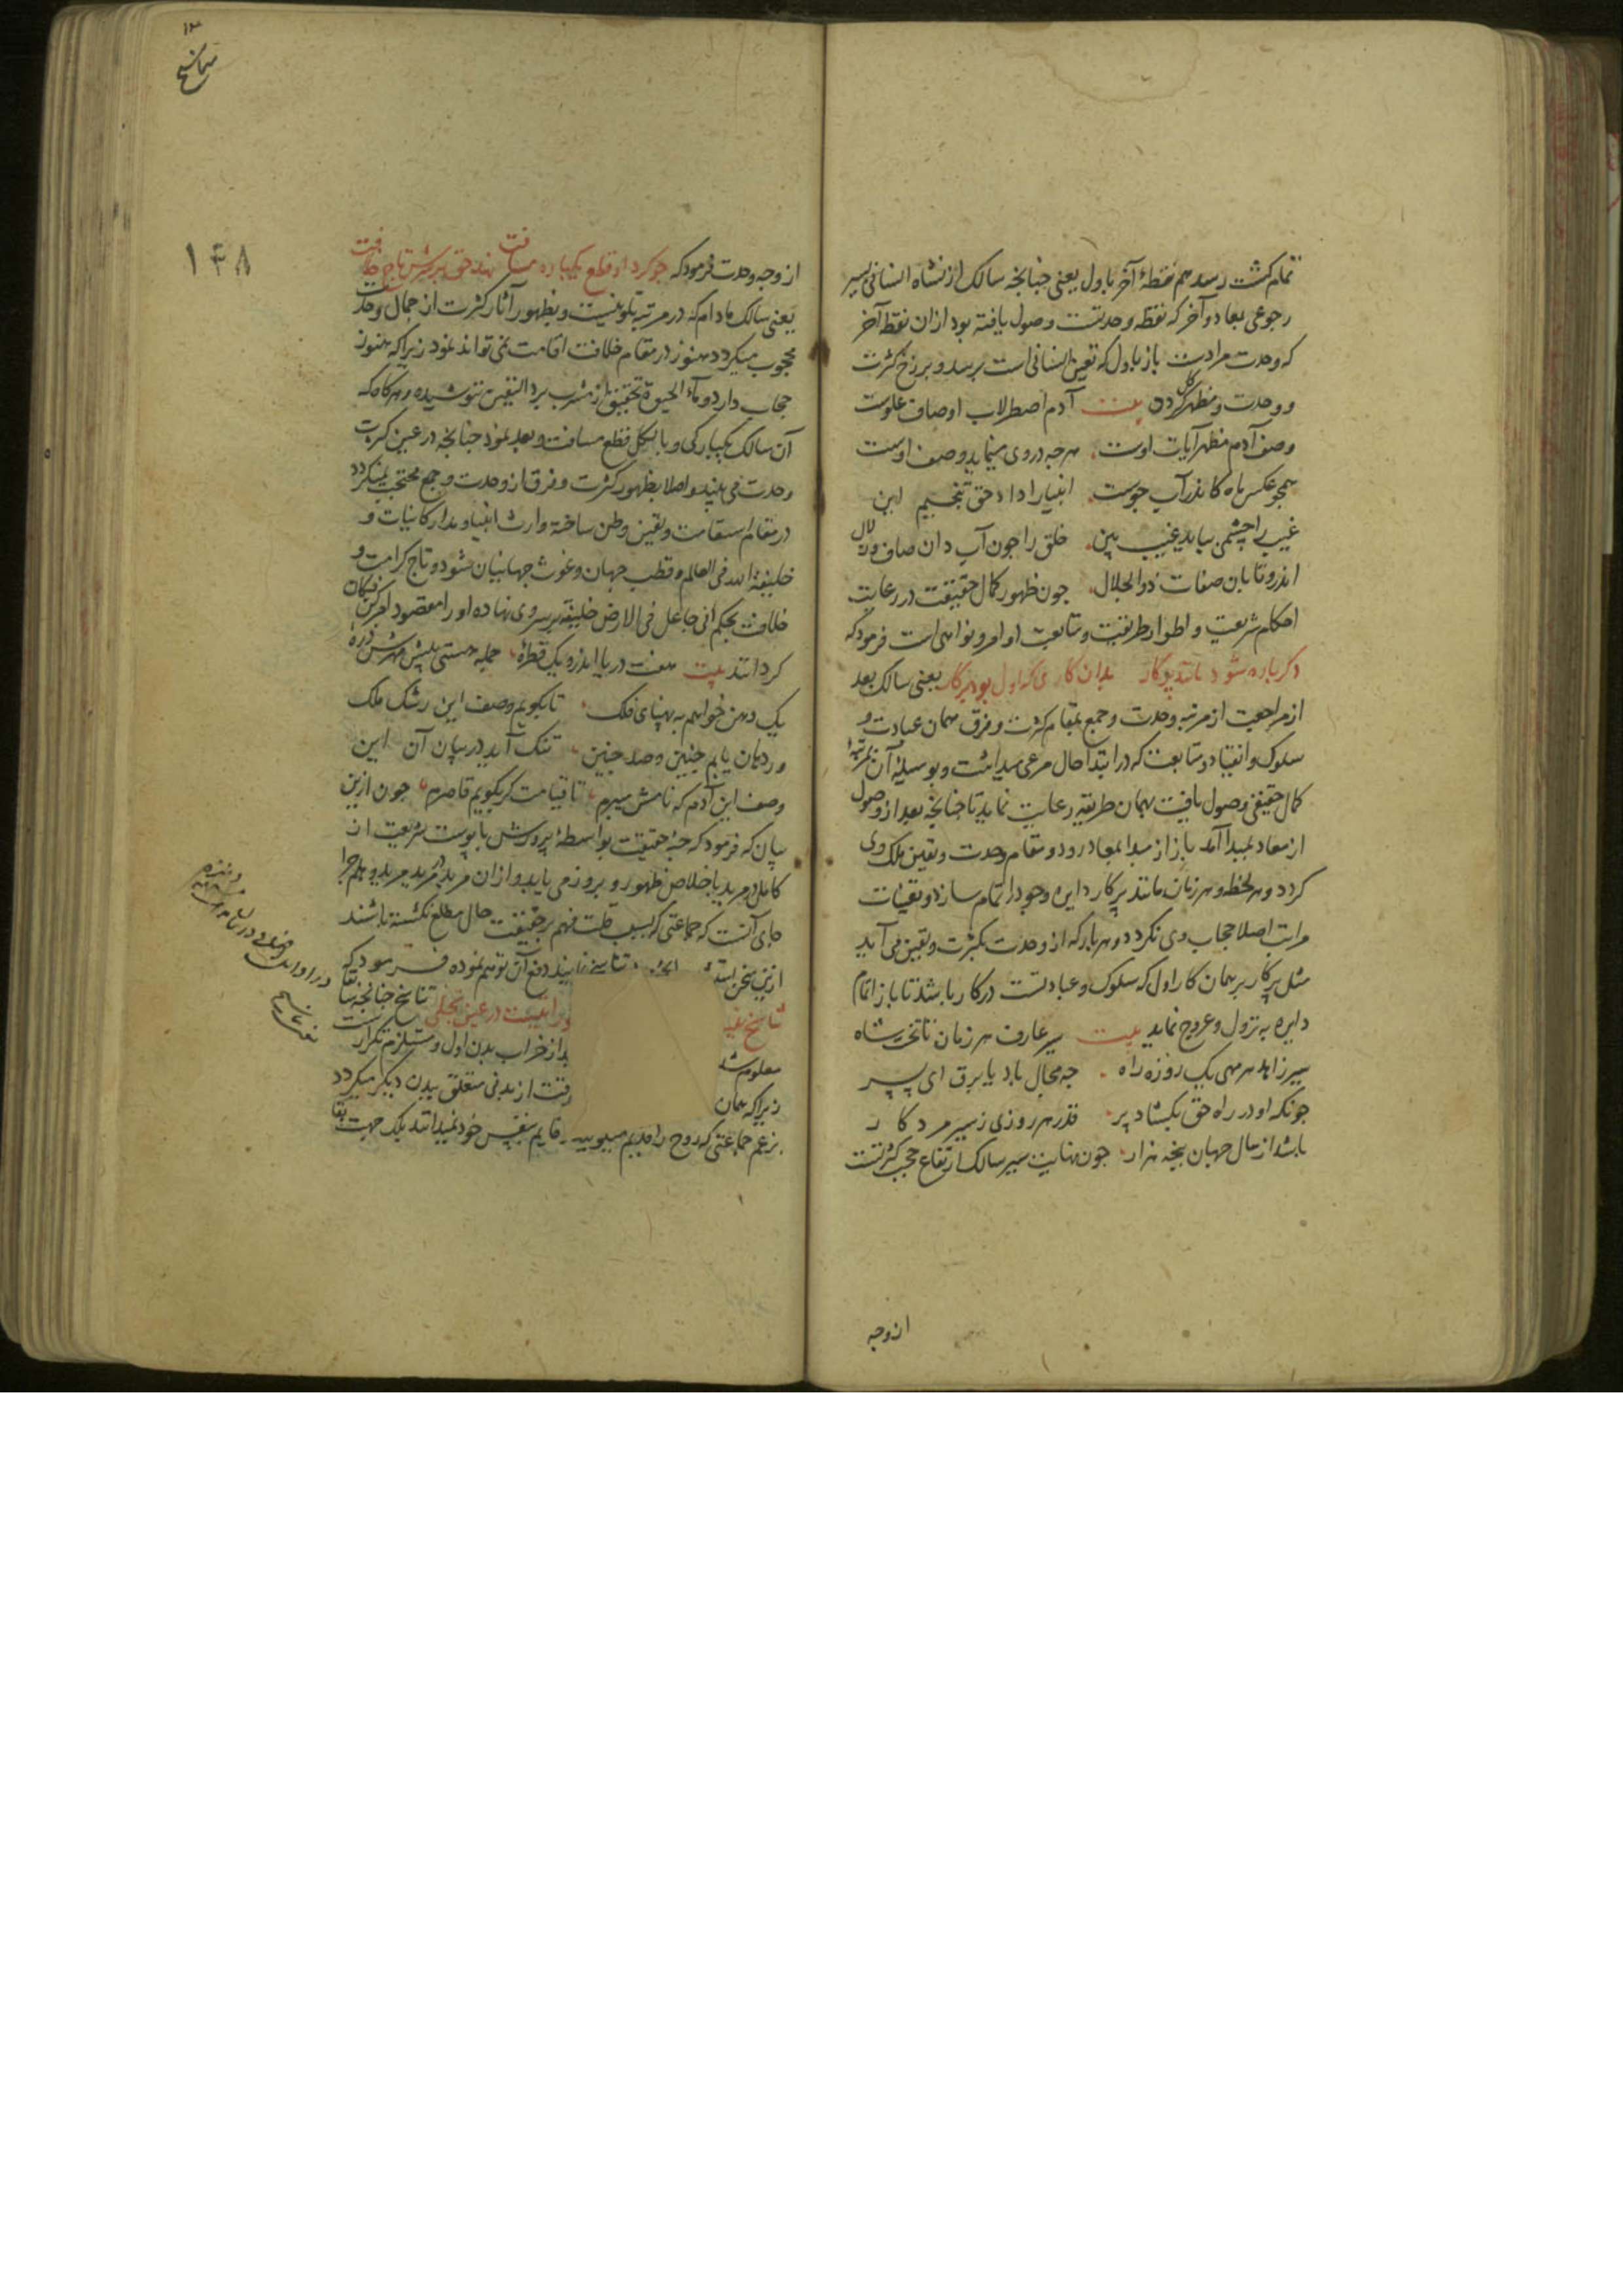 تمام کشت رسد هم نقطهٔ آخر باول یعنی جنانجه سالک از نشاه انسانی بسیر
رجوعی بمعاد و آخر که نقطه وحدتست وصول یافته بود ازان نقطه آخر
که وحدت مرادست باز باول که تعین انسانی است برسد و برزخ کثرت
و وحدت و مظهر کل کردد بیت آدم اصطرلاب اوصاف علوست
وصف آدم مظهر آیات اوست هرجه دروی مینماید وصف اوست
همجو عکس ماه کاندر آب جوست انبیا را داد حق تنجیم این
غیب را چشمی بباید غیب بین خلق را جون آب دان صاف و زلال
اندرو تابان صفات ذوالجلال جون ظهور کمال حقیقت در رعایت
احکام شریعت و اطوار طریقت و متابعت اوامر و نواهی است فرمود که
دکرباره شود مانند پرکار بدان کاری که اول بود بر کار یعنی سالک بعد
از مراجعت از مرتبه وحدت و جمع بمقام کثرت و فرق همان عبادت و
سلوک و انقیاد و متابعت که در ابتدا حال مرعی میداشت و بوسیله آن بمرتبهٔ
کمال حقیقی وصول یافت بهمان طریقه رعایت نماید تا جنانجه بعد از وصول
از معاد بمبدا آمد باز از مبدا بمعاد رود و مقام وحدت و تعین ملک وی
کردد و هر لحظه و هر زمان مانند پرکار دایره وجود را تمام سازد و تعینات
مراتب اصلا حجاب وی نکردد و هر بار که از وحدت بکثرت و تعین می آید
مثل پرکار بر همان کار اول که سلوک و عبادتست در کار باشد تا باز اتمام
دایره به نزول و عروج نماید بیت سیر عارف هر زمان تا تخت شاه
سیر زاهد هر مهی یک روزه راه جه مجال باد یا برق ای پسر
جونکه او در راه حق بکشاد پر قدر هر روزی ز سیر مرد کار
باشد از سال جهان پنجه هزار جون نهایت سیر سالک ارتفاع حجب کثرتست
از وجه
تناسخ
۱۴۸
از وجه وحدت فرمود که جو کرد او قطع یکباره مسافت نهد حق بر سرش تاج خلافت
یعنی سالک مادام که در مرتبه تلوینیست و بظهور آثار کثرت از جمال وحدت
محجوب میکردد هنوز در مقام خلافت اقامت نمی تواند نمود زیرا که هنوز
حجاب دارد و ماء الحیوة تحقیق از مشرب برد الیقین ننوشیده و هرکاه که
آن سالک یکبارکی و بالکل قطع مسافت و بعد نمود جنانجه در عین کثرت
وحدت می بیند و اصلا بظهور کثرت و فرق از وحدت و جمع محتجب نمیکردد
در مقام استقامت و تعین وطن ساخته وارث انبیا و مدار کاینات و
خلیفة الله فی العالم و قطب جهان و غوث جهانیان شود و تاج کرامت و
خلافت بحکم انی جاعل فی الارض خلیفه بر سر وی نهاده او را مقصود امر کن فیکان
کردانند بیت هفت دریا اندرو یک قطرهٔ جمله هستی پیش مهرش ذرهٔ
یک دهن خواهم به پهنای فلک تا بکویم وصف این رشک ملک
ور دهان یابم چنین و صد چنین تنک آید در بیان آن این
وصف این آدم که نامش میبرم تا قیامت کر بکویم قاصرم جون ازین
بیان که فرمود که حبهٔ حقیقت بواسطهٔ پرورش با پوست شریعت از
کامل در مرید باخلاص ظهور و بروز می یابد و ازان مرید در مرید مرید و هلم جرا
جای آنست که جماعتی که بسبب قلت فهم بر حقیقت حال مطلع نکشته باشند
ازین سخن تناسخ دفع آن توهم نموده فرمود که
تناسخ نبود ورا نیست در عین تجلی تناسخ جنانجه سابقا
معلوم شد بعد از خراب بدن اول و مستلزم تکرار است
زیرا که همان رفت از بدنی متعلق ببدن دیکر میکردد
بزعم جماعتی که روح را قدیم میکویند قایم بنفس خود نمیدانند بلکه جهت بقا